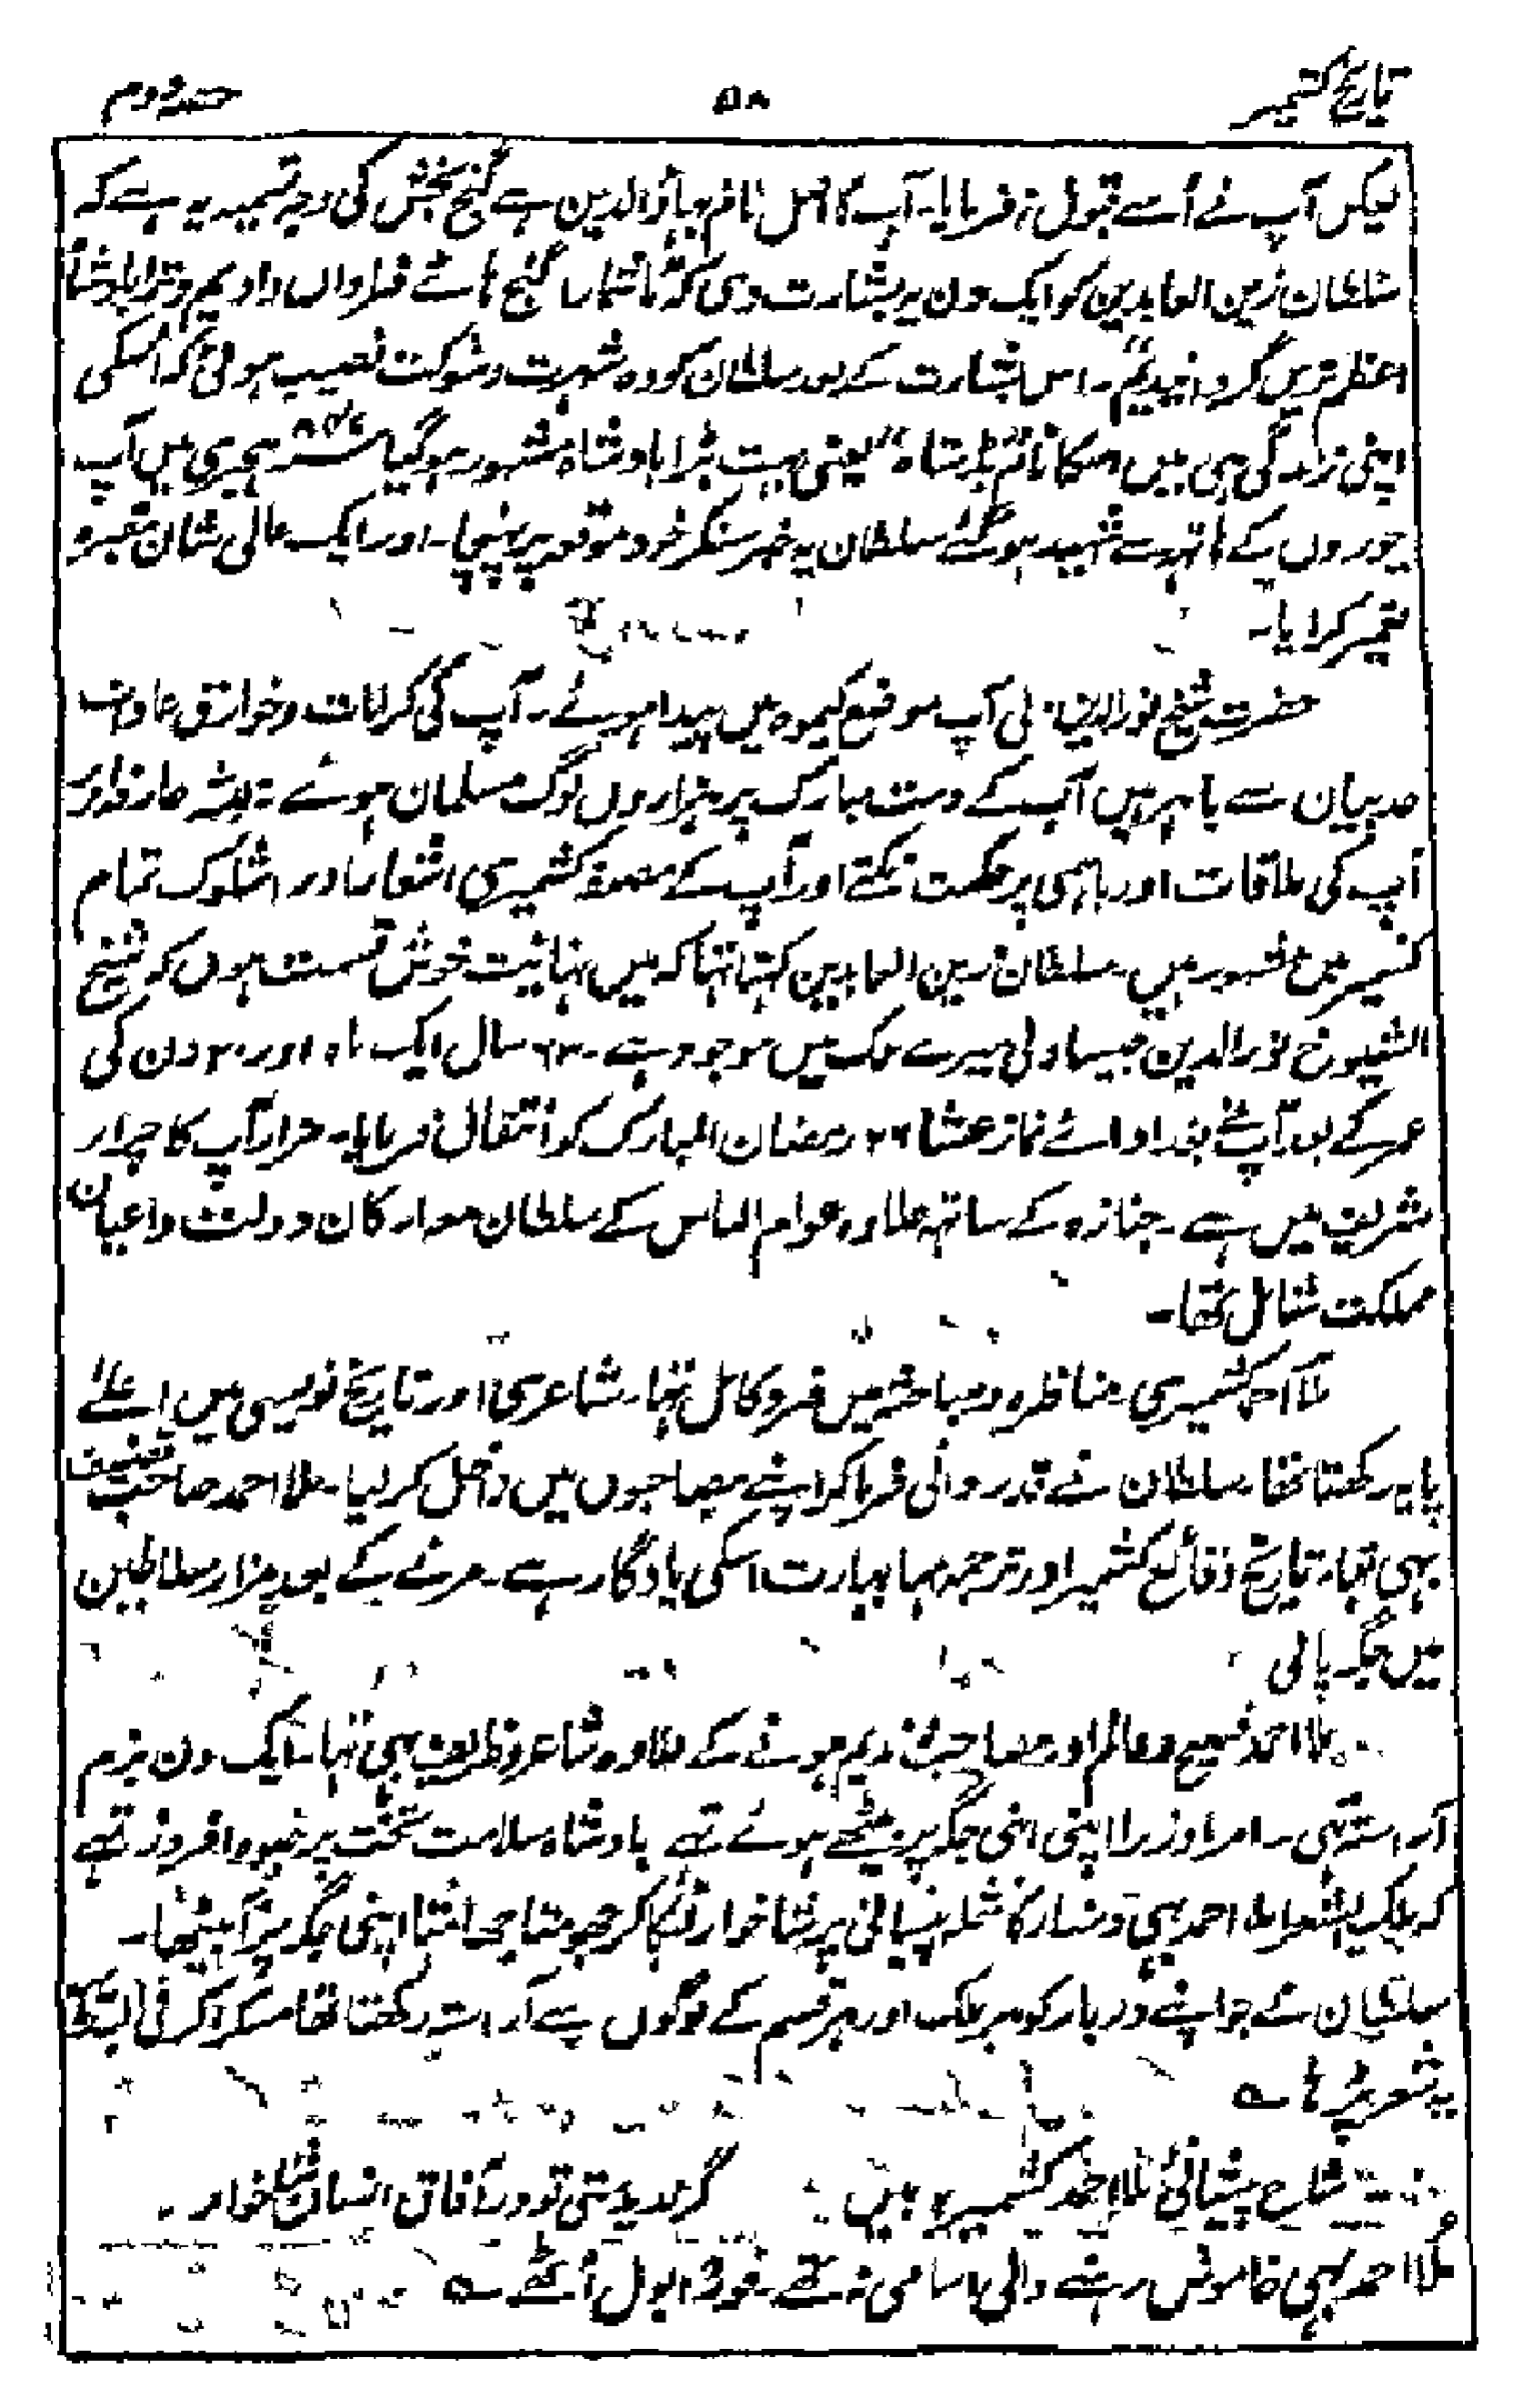 تاریخ کشمیر ۵۸ حصہ دوم
لیکن آپ نے اُسے قبول نہ فرمایا۔ آپ کا اصل نام بہاؤالدین ہے گنج بخش کی وجہ تسمیہ یہ ہے کہ
سلطان زین العابدین کو ایک دن یہ بشارت دی کہ ما شمارا گنج ہائے فراواں دادیم و ترا بادشاہ
اعظم ترین گردانیدیم"۔ اس بشارت کے بعد سلطان کو وہ شہرت و شوکت نصیب ہوئی کہ اسکی
اپنی زندگی ہی میں اسکا نام "بڈشاہ" یعنی بہت بڑا بادشاہ مشہور ہوگیا ہجری میں آپ
چوروں کے ہاتھ سے شہید ہوگئے سلطان یہ خبر سنکر خود موقعہ پر پہنچا۔ اور ایک عالی شان مقبرہ
تعمیر کرایا۔
حضرت شیخ نورالدین ولی آپ موضع کیموہ میں پیدا ہوئے۔ آپ کی کرامات و خوارق عادات
حد بیان سے باہر ہیں آپ کے دست مبارک پر ہزاروں لوگ مسلمان ہوئے
آپ کی ملاقات اور باہمی پر حکمت نکتے اور آپ کے مصنفہ کشمیری اشعار اور اشلوک تمام
کشمیر میں مشہور ہیں سلطان زین العابدین کہتا تہا کہ میں نہایت خوش قسمت ہوں کہ شیخ
الشیوخ نورالدین جیسا ولی میرے ملک میں موجود ہے۔ ۶۳ سال ایک ماہ اور ۲۰ دن کی
عمر کے بعد آپ نے بعد ادائے نماز عشا ۲۶ رمضان المبارک کو انتقال فرمایا۔ مزار آپ کا چرار
شریف میں ہے۔ جنازہ کے ساتھ علاوہ عوام الناس کے سلطان معہ ارکان دولت و اعیان
مملکت شامل تھا۔
ملا احمد کشمیری۔ مناظرہ و مباحثہ میں فرد کامل تہا۔ شاعری اور تاریخ نویسی میں اعلےٰ
پایہ رکھتا تھا۔ سلطان نے قدر دانی فرما کر اپنے مصاحبوں میں داخل کر لیا۔ ملا احمد صاحب تصنیف
بہی تہا۔ تاریخ وقائع کشمیر اور ترجمہ مہا بہارت اسکی یادگار ہے۔ مرنے کے بعد مزار سلاطین
میں جگہ پائی
ملا احمد فصیح و عالم اور مصاحب و ندیم ہونے کے علاوہ شاعر و ظریف بہی تہا۔ ایک دن بزم
آراستہ تہی۔ امرا وزرا اپنی اپنی جگہ پر بیٹھے ہوئے تہے بادشاہ سلامت تخت پر جلوہ افروز تہے
کہ ملک الشعرا ملا احمد بہی دستار کا شملہ پیشانی پر شاخوار لٹکا کر جھومتا جھامتا اپنی جگہ پر آ بیٹھا۔
سلطان نے جو اپنے دربار کو ہر ملک اور ہر قسم کے لوگوں سے آراستہ رکھتا تھا مسکرا کر فی البدیہہ
یہ شعر پڑہا ؎
شاخ پیشانئ ملا احمد کشمیر بیں گر ندیدستی تو در آفاق انسان شاخوار۔
ملا احمد بہی خاموش رہنے والی اسامی نہ تھے۔ فوراً بول اُٹھے ؎